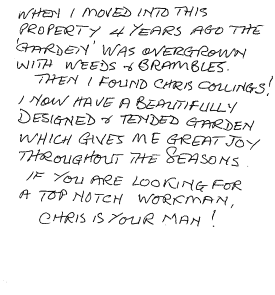 WHEN I MOVED INTO THIS
PROPERTY 4 YEARS AGO THE
'GARDEN' WAS OVERGROWN
WITH WEEDS & BRAMBLES.
THEN I FOUND CHRIS COLLINGS!
I NOW HAVE A BEAUTIFULLY
DESIGNED & TENDED GARDEN
WHICH GIVES ME GREAT JOY
THROUGHOUT THE SEASONS.
IF YOU ARE LOOKING FOR
A TOP NOTCH WORKMAN,
CHRIS IS YOUR MAN!